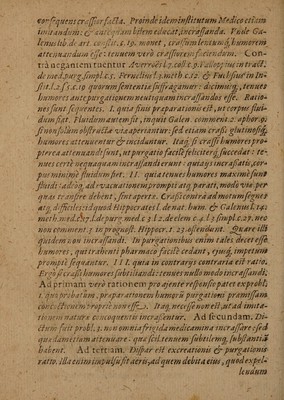 consequens crassior facta. Proinde idem institutum Medico etiam
imitandum: & cacoquam bilem educat, incrassanda. Vide Gale
num lib. de art. constit. c. 19. monet, crassum lentumq́, humorem
attenuandum esse: tenuem verò crassiorem faciendum. Con-
trà negantem tuentur Averroës l. 7. coll. c. 9. in tract.
de med. purg. simpl. c. 5. Fernelius l. 3. meth. c. 12. & Fuchsius in In-
stit. l. 2. s. 5. c. 10 quorum sententia suffragamur: dicimusq́, tenues
humores ante purgationem neutiquam incrassandos esse. Ratio-
nes sunt sequentes. I. quia finis praeparationis est, ut corpus flui-
dum fiat. Fluidum autem fit, inquit Galen. comment. 2. aphor. 9.
si non solùm obstructae viae aperiantur: sed etiam crassi glutinosiq́,
humores attenuentur & incidantur. Itaq́, si crassi humores pro-
pterea attenuandi sunt, ut purgatio facile feliciterq́, succedat: te-
nues certè nequaquam incrassandi erunt: quippe incrassatis, cor-
pus minimè fluidum fiet. II. quia tenues humores maximè sunt
fluidi: adeoq́, ad evacuationem prompti atq́, parati, modò viae, per
quas transire debent, sint apertae. Crassi contrà ad motum segnes
atq́, difficiles: id quod Hippocrates l. de nat. hum. & Galenus l. 14.
meth. med. l. de purg. med. c. 3. l. 2. de elem. c. 4. l. 3. simpl. c. 25. nec
non comment. 5. in prognost. Hippocr. t. 23. ostendunt. Quare illi
quidem non incrassandi. In purgationibus enim tales decet esse
humores, qui trahenti pharmaco facilè cedant, eumq́, motorem
promptè sequantur. III. quia in contrariis contraria est ratio.
Ergò si crassi humores subtiliandi: tenues nullo modo incrassandi.
Ad primam verò rationem pro ajente responsio patet ex probl.
1. quo probatum, praeparationem humoris purgationi praemissam
concoctionem non esse. Itaq́, necesse non est, ut ad imita-
tionem naturae concoquentis incrassentur. Ad secundam. Di-
ctum fuit probl. 5. non omnia frigida medicamina incrassare: sed
quaedam etiam attenuare: quae scil. tenuem subtilemq́, substantiã
habent. Ad tertiam. Dispar est excreationis & purgationis
ratio. Illa enim impulsu fit aëris, ad quem debita ejus, quod expel-
lendum